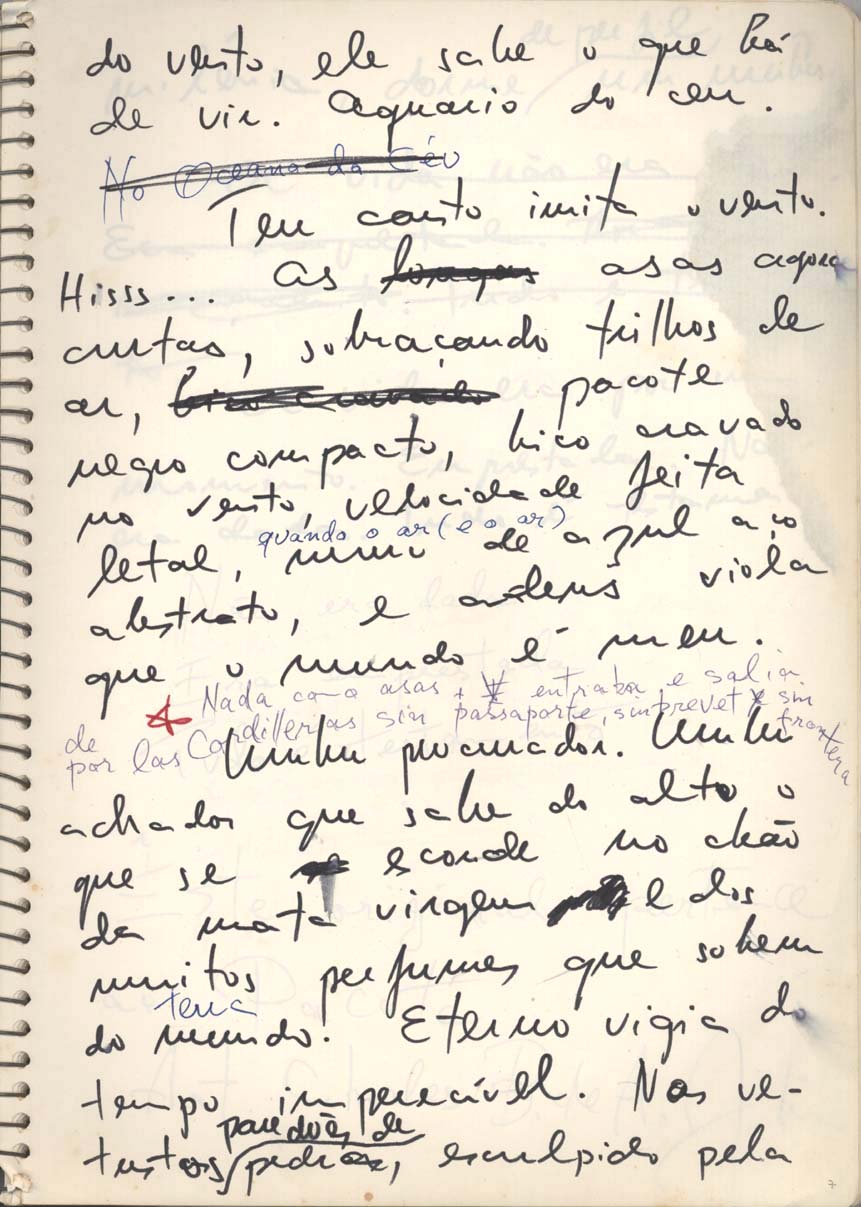 do vento, ele sabe o que há
de vir. Aquario do ceu.
No Oceano do Céu
Teu canto imita o vento.
Hisss... As longas asas agora
curtas, sobraçando trilhos de
ar, bico cravado pacote
negro compacto, bico cravado
no vento, velocidade feita
quando o ar (e o ar)
letal, de azul aço
abstrato, e adeus viola
que o mundo é meu.
Nada com o asas + entraba e salia
de por las Cordillerias sin passaporte, sin prevet sin frontera
Minha procurador. Minha
achador que sabe do alto o
que se esconde no chão
da mata virgem e dos
muitos perfumes que sobem
terra
do mundo. Eterno vigia do
tempo imperecível. Nas ve-
paredões de
tustas pedras, esculpido pela
7